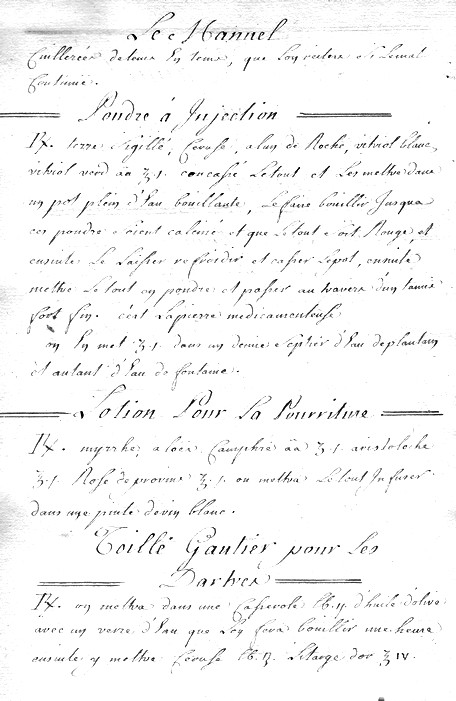 Le Mannuel
Cuillerées de tems En tems, que l'on reitera si le mal
Continüe.
Poudre à Injection
R/. terre sigillé, Ceruse, alun de Roche, vitriol blanc,
vitriol verd aa ʒ.1. concassé le tout et les mettre dans
un pot plein d'Eau bouillante, le faire bouillir Jusqua
ces poudre soient calciné et que le tout soit Rouge, et
ensuite le laisser refroidir et casser le pot, ensuite
mettre le tout en poudre et passer au travers d'un tamis
fort fin. c'est la pierre medicamenteuse
on En met ʒ.1. dans un demie septier d'Eau de plantain
et autant d'Eau de fontaine.
Lotion Pour La Pourriture
R/. myrrhe, aloës Camphré aa ʒ.1. aristoloche
ʒ.1. Rose de provins ʒ.1. on mettra le tout Infuser
dans une pinte de vin blanc.
Toille Gautier pour les
Dartres
R/. on mettra dans une Casserole lb.ij. d'huile d'olive
avec un verre d'Eau que l'on fera bouillir une heure
ensuite y mettre Ceruse lb.ß. Litarge d'or ʒ IV.